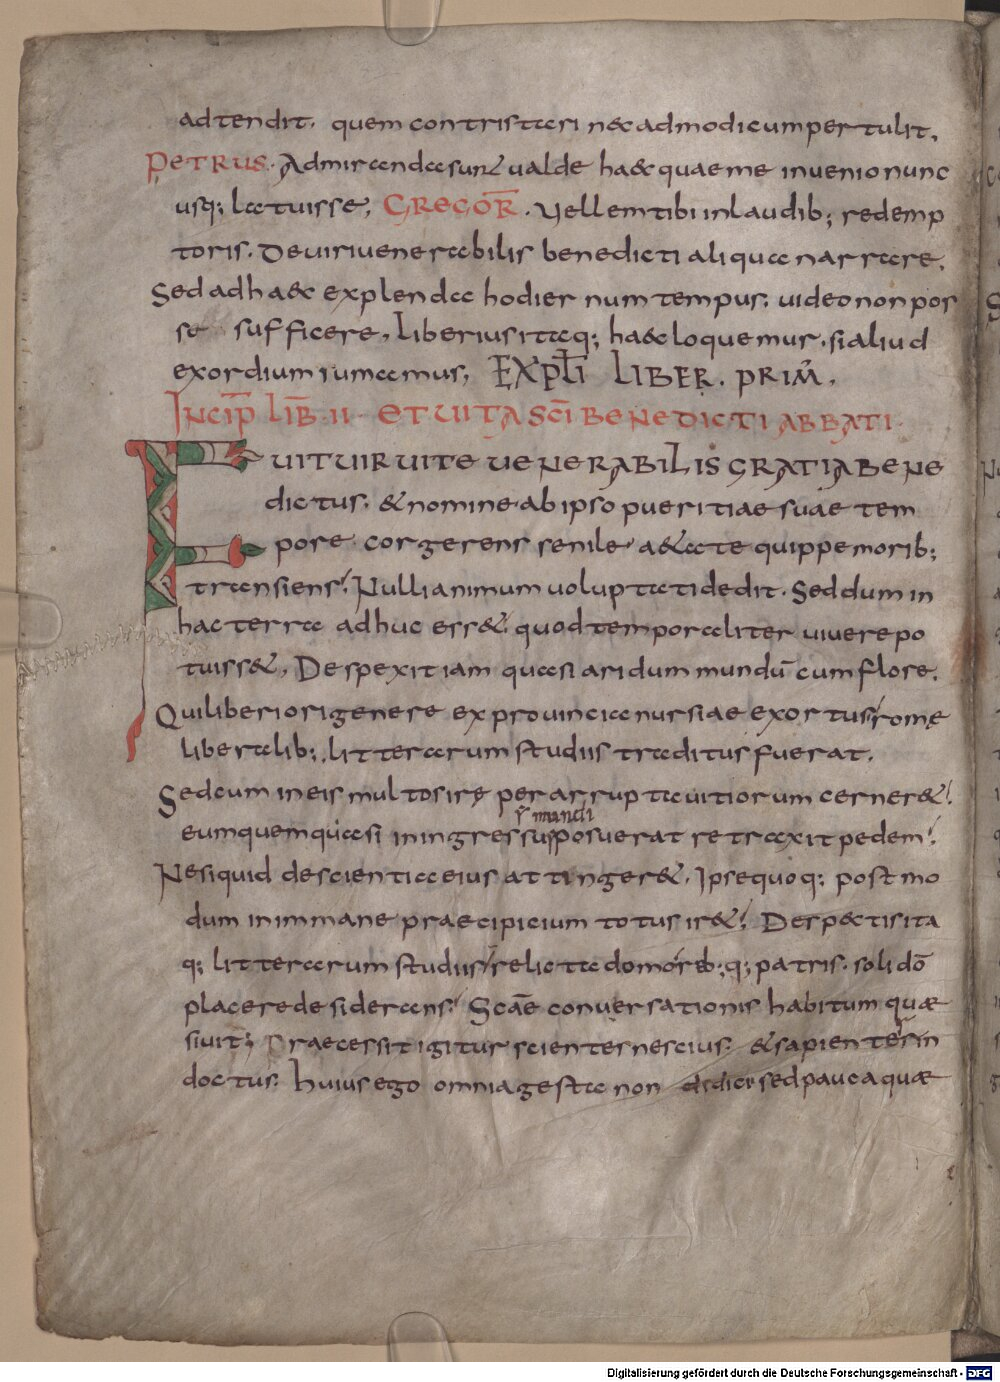 adtendit. quem contristari nec ad modicum pertulit.
PETRUS. Admirandae sunt ualde haec quae me inuenio nunc
usq; latuisse, GREGOR̄. Uellem tibi in laudib; redemp
toris. De uiri uenerabilis benedicti aliqua narrare.
Sed ad haec explenda hodiernum tempus; uideo non pos
se sufficere, Liberius itaq; haec loquemur. si aliud
exordium sumamus, EXPLI LIBER. PRIM̄.
INCIP̄ LIB̄. II. ET UITA SCĪ BENEDICTI ABBATI
FUIT UIR UITE UENERABILIS GRATIA BENE
dictus. & nomine. ab ipso pueritiae suae tem
pore cor gerens senile. aetate quippe morib;
transiens. Nulli animum uoluptati dedit. Sed dum in
hac terra adhuc ess&. quod temporaliter uiuere po
tuiss&, Despexit iam quasi aridum mundū cum flore.
Qui liberiori genere ex prouincia nursiae exortus rome
liberalib; litterarum studiis traditus fuerat.
Sed cum in eis multos ire per arrupta uitiorum cerner&.
mundi
eum quem quasi in ingressus posuerat retraxit pedem.
Ne si quid de scientia eius attinger&. Ipse quoq; post mo
dum in immane praecipicium totus ir&. Despectis ita
q; litterarum studiis relicta domo reb;q; patris. soli dō
placere desiderans. Scāe conuersationis habitum quae
siuit; Praecessit igitur scienter nescius. & sapienter in
doctus. huius ego omnia gesta non didici sed pauca quae
Digitalisierung gefördert durch die Deutsche Forschungsgemeinschaft - DFG